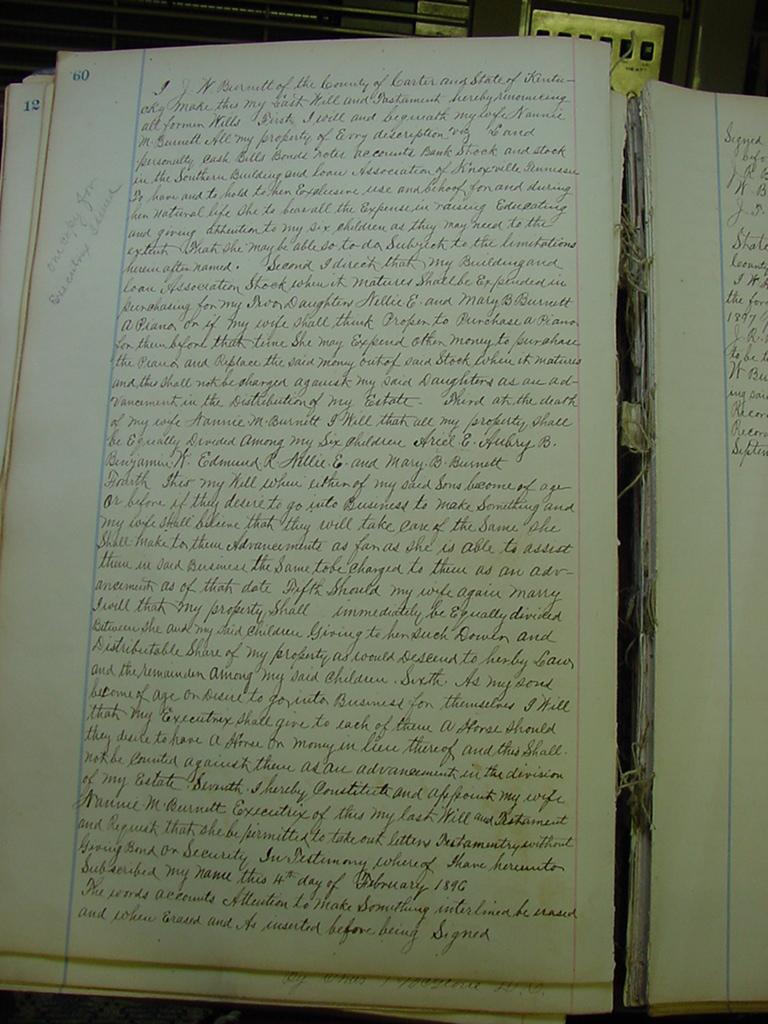 60
12
I J. W Burnett of the County of Carter and State of Kentu-
cky make this my Last Will and Testament hereby renouncing
all former Wills First I will and bequeath my wife Nannie
M. Burnett All my property of Evry discription viz Land
personalty Cash Bills Bonds notes accounts Bank Stock and stock
in the Southern Building and loan Association of Knoxville Tennessee
To have and to hold to her Exclusive use and behoof for and during
her natural life She to bear all the Expense in raising Educating
and giving attention to my six children as they may need to the
extent That she may be able so to do Subject to the limitations
herein after named. Second I direct that my Building and
loan Association Stock when it matures Shall be Expended in
purchasing for my Two Daughters Nellie E. and Mary B Burnett
A Piano, or if my wife shall think Proper to Purchase a Piano
for them before that time She may Expend other money to purchase
the Piano and Replace the said money out of said Stock when it matures
and this shall not be charged against my said Daughters as an ad-
vancement in the Distribution of my Estate. Third at the death
of my wife Nannie M. Burnett I Will that all my property shall
be Equally Divided among my Six children Ariel E. Aubry B.
Benjamin W. Edmund R. Nellie E. and Mary. B. Burnett
Fourth This my Will when either of my said Sons become of age
Or before if they desire to go into Business to make Something and
my wife shall believe that they will take care of the Same She
Shall make to them Advancements as far as she is able to assist
them in said Business the Same to be charged to them as an adv-
ancement as of that date Fifth Should my wife again marry
I will that my property, Shall immediately be Equally divided
Between She and my said children Giving to her such Dower and
Distributable Share of my property as would Descend to her by Law
and the remainder among my said children. Sixth. As my sons
become of age or Desire to go into Business for themselves I Will
that my Executrix shall give to each of them A Horse should
they desire to have A Horse or money in lieu thereof and this Shall.
not be Counted against them as an advancement in the division
of my Estate Seventh. I hereby Constitute and appoint my wife
Nannie M. Burnett Executrix of this my last Will and Testament
and Request that she be permitted to take out letters Testamentry without
Giving Bond or Security In Testimony whereof I have hereunto
Subscribed my name this 4th day of February 1896
The words accounts Attention to Make Something interlined be erased
and when Erased and As inserted before being Signed
one copy for
Executrix issued
Signed
befo
W. B
State
County
I W.
the for
1897
J. R.
to be t
W Bu
ing said
Recor
Recor
Septem